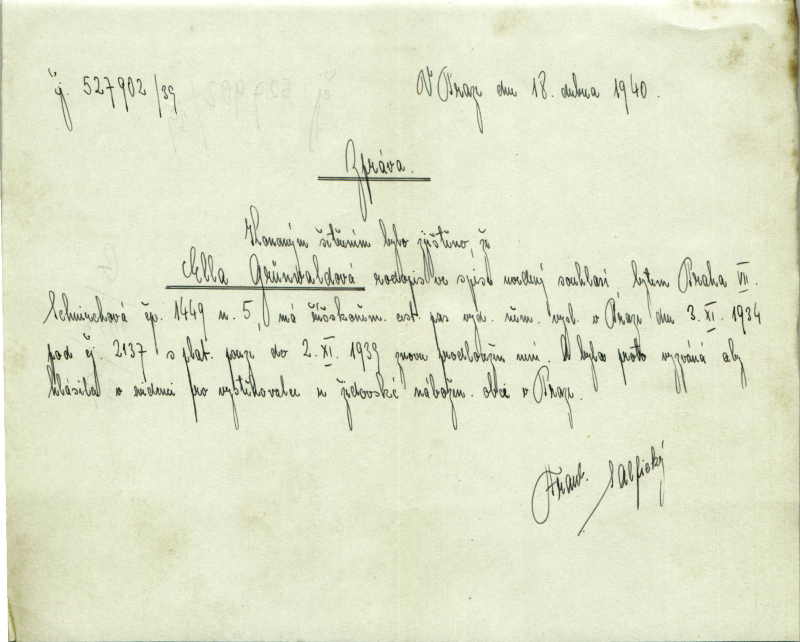 čj. 527902/39
V Praze dne 18. dubna 1940.
Zpráva.
Konaným šetřením bylo zjištěno, že
Ella Grünwaldová rodopis ve spise uvedený souhlasí, bytem Praha VII.
Schnirchová čp. 1449 n. 5, má říšskoněm. cest. pas vyd. něm. vysl. v Praze dne 3. XI. 1934
pod čj. 2137 s plat. pouze do 2. XI. 1939 znovu prodloužen není. A byla proto vyzvána aby
hlásila v evidenci pro vystěhovalce u židovské nábožen. obci v Praze.
Frant.